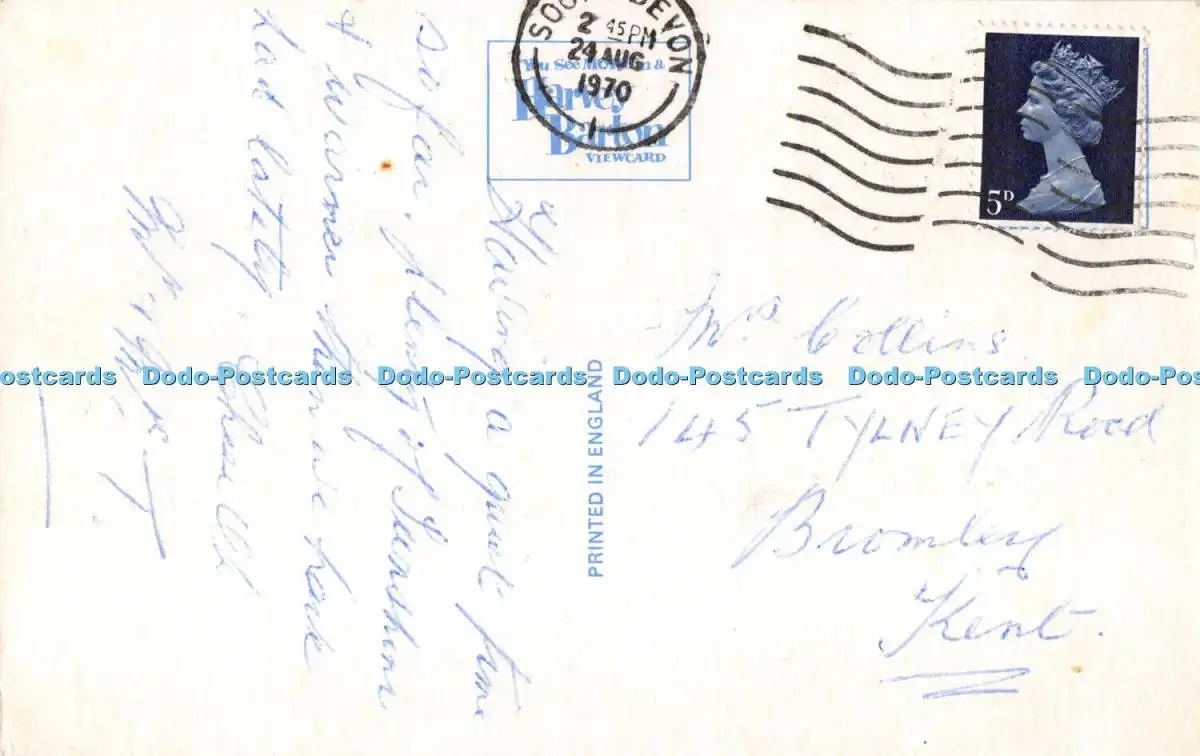 SOUTH DEVON
2 45PM
24 AUG
1970
1
You See MORE in a
Harvey
Barton
VIEWCARD
5D
Having a quiet time
so far. plenty of Sunshine
& warmer than we have
had lately
Cheers All
PRINTED IN ENGLAND
Mrs Collins
145 TYLNEY Road
Bromley
Kent.
ostcards Dodo-Postcards Dodo-Postcards Dodo-Postcards Dodo-Postcards Dodo-Po